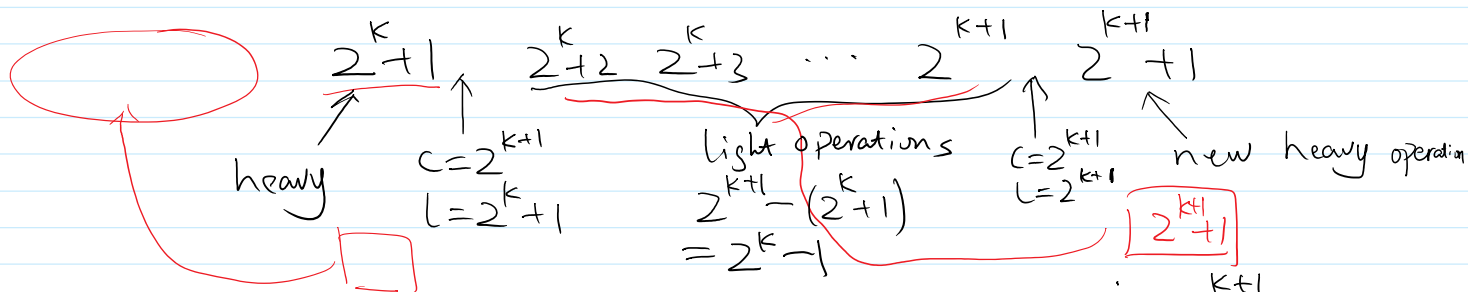 2^k+1 2^k+2 2^k+3 ... 2^{k+1} 2^{k+1}+1
heavy
c=2^{k+1}
l=2^k+1
light operations
2^{k+1}-(2^k+1)
=2^k-1
c=2^{k+1}
l=2^{k+1}
new heavy operation
2^{k+1}+1
k+1